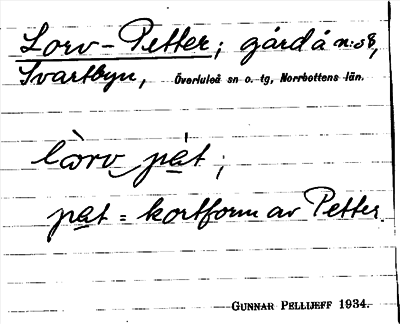 Lorv-Petter; gård å n:o 8,
Svartbyn, Överluleå sn o. tg, Norrbottens län.
lòrv pát;
pat = kortform av Petter.
GUNNAR PELLIJEFF 1934.